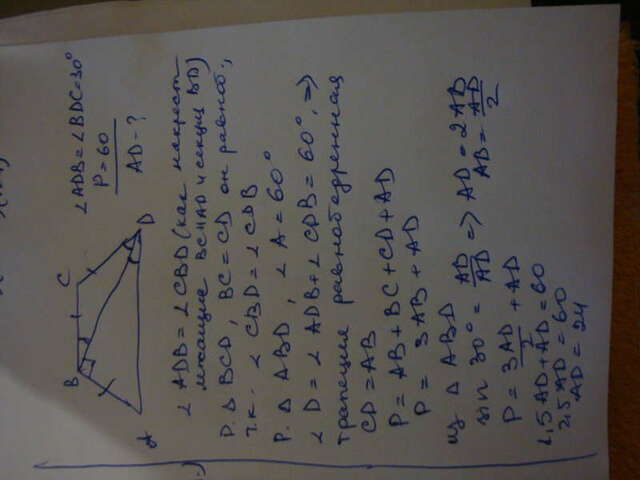 B
C
A
D
∠ADB = ∠BDC = 30°
P = 60
AD - ?
∠ADB = ∠CBD (как накрест
лежащие BC||AD и секущ BD)
Р. △ BCD, BC = CD он равноб.,
т.к. ∠CBD = ∠CDB
Р. △ ABD, ∠A = 60°
∠D = ∠ADB + ∠CDB = 60°, =>
трапеция равнобедренная
CD = AB
P = AB + BC + CD + AD
P = 3AB + AD
из △ ABD
sin 30° = AD/AD => AD = 2AB
AB = AD/2
P = 3AD/2 + AD
1,5AD + AD = 60
2,5AD = 60
AD = 24